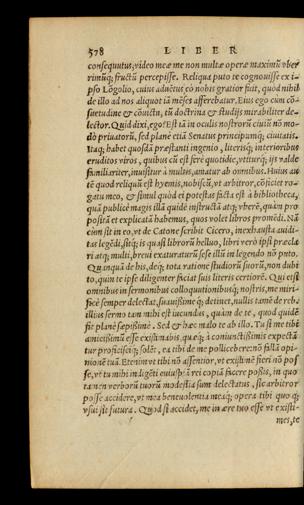 578 LIBER
consequutus; video meæ me non multæ operæ maximũ vber
rimũq; fructũ percepisse. Reliqua puto te cognouisse ex i-
pso Lõgolio, cuius aduẽtus eò nobis gratior fuit, quòd nihil
de illo ad nos aliquot iã mẽses afferebatur. Eius ego cùm cõ-
suetudine & cõuictu, tũ doctrina & studijs mirabiliter de-
lector. Quid dixi, ego? Est iã in oculis nostrorũ ciuiũ nõ mo-
dò priuatorũ, sed planè etiã Senatus principumq; ciuitatis.
Itaq; habet quosdã præstanti ingenio, literisq; interioribus
eruditos viros, quibus cũ est ferè quotidie, vtiturq; ijs valde
familiariter, inuisitur à multis, amatur ab omnibus. Huius au
tẽ quod reliquũ est hyemis, nobiscũ, vt arbitror, cõficiet ro-
gatu meo, & simul quòd ei potestas facta est à bibliotheca,
quã publicè magis illã quidẽ instructã atq; vberẽ, quàm pro
positã et explicatã habemus, quos volet libros promẽdi. Nã
cùm sit in eo, vt de Catone scribit Cicero, inexhausta auidi-
tas legẽdi, sitq; is quasi librorũ helluo, libri verò ipsi præcla
ri atq; multi, breui exaturaturũ sese illũ in legendo nõ puto.
Quanquã de his, deq; tota ratione studiorũ suorũ, non dubi
to, quin te ipse diligenter faciat suis literis certiorẽ. Qui etsi
omnibus in sermonibus colloquutionibusq; nostris, me miri-
ficè semper delectat, suauissimeq́; detinet, nullis tamẽ de rebꝰ
illius sermo tam mihi est iucundus, quàm de te, quod quidẽ
fit planè sæpissimè. Sed & hæc malo te ab illo. Tu si me tibi
amicissimũ esse existimabis, quæq; à coniunctissimis expectã
tur proficisciq; solẽt, ea tibi de me polliceberis: nõ fallã opi-
nionẽ tuã. Etenim vt tibi nõ assentior, vt existimẽ fieri nõ pos
se, vt tu mihi indigẽti euiusꝙ̃ã rei copiã facere possis, in quo
tamen verborũ tuorũ modestia sum delectatus, sic arbitror
posse accidere, vt mea beneuolentia meaq; opera tibi quoq;
vsui sit futura. Quod si accidet, me in ære tuo esse vt existi-
mes, te